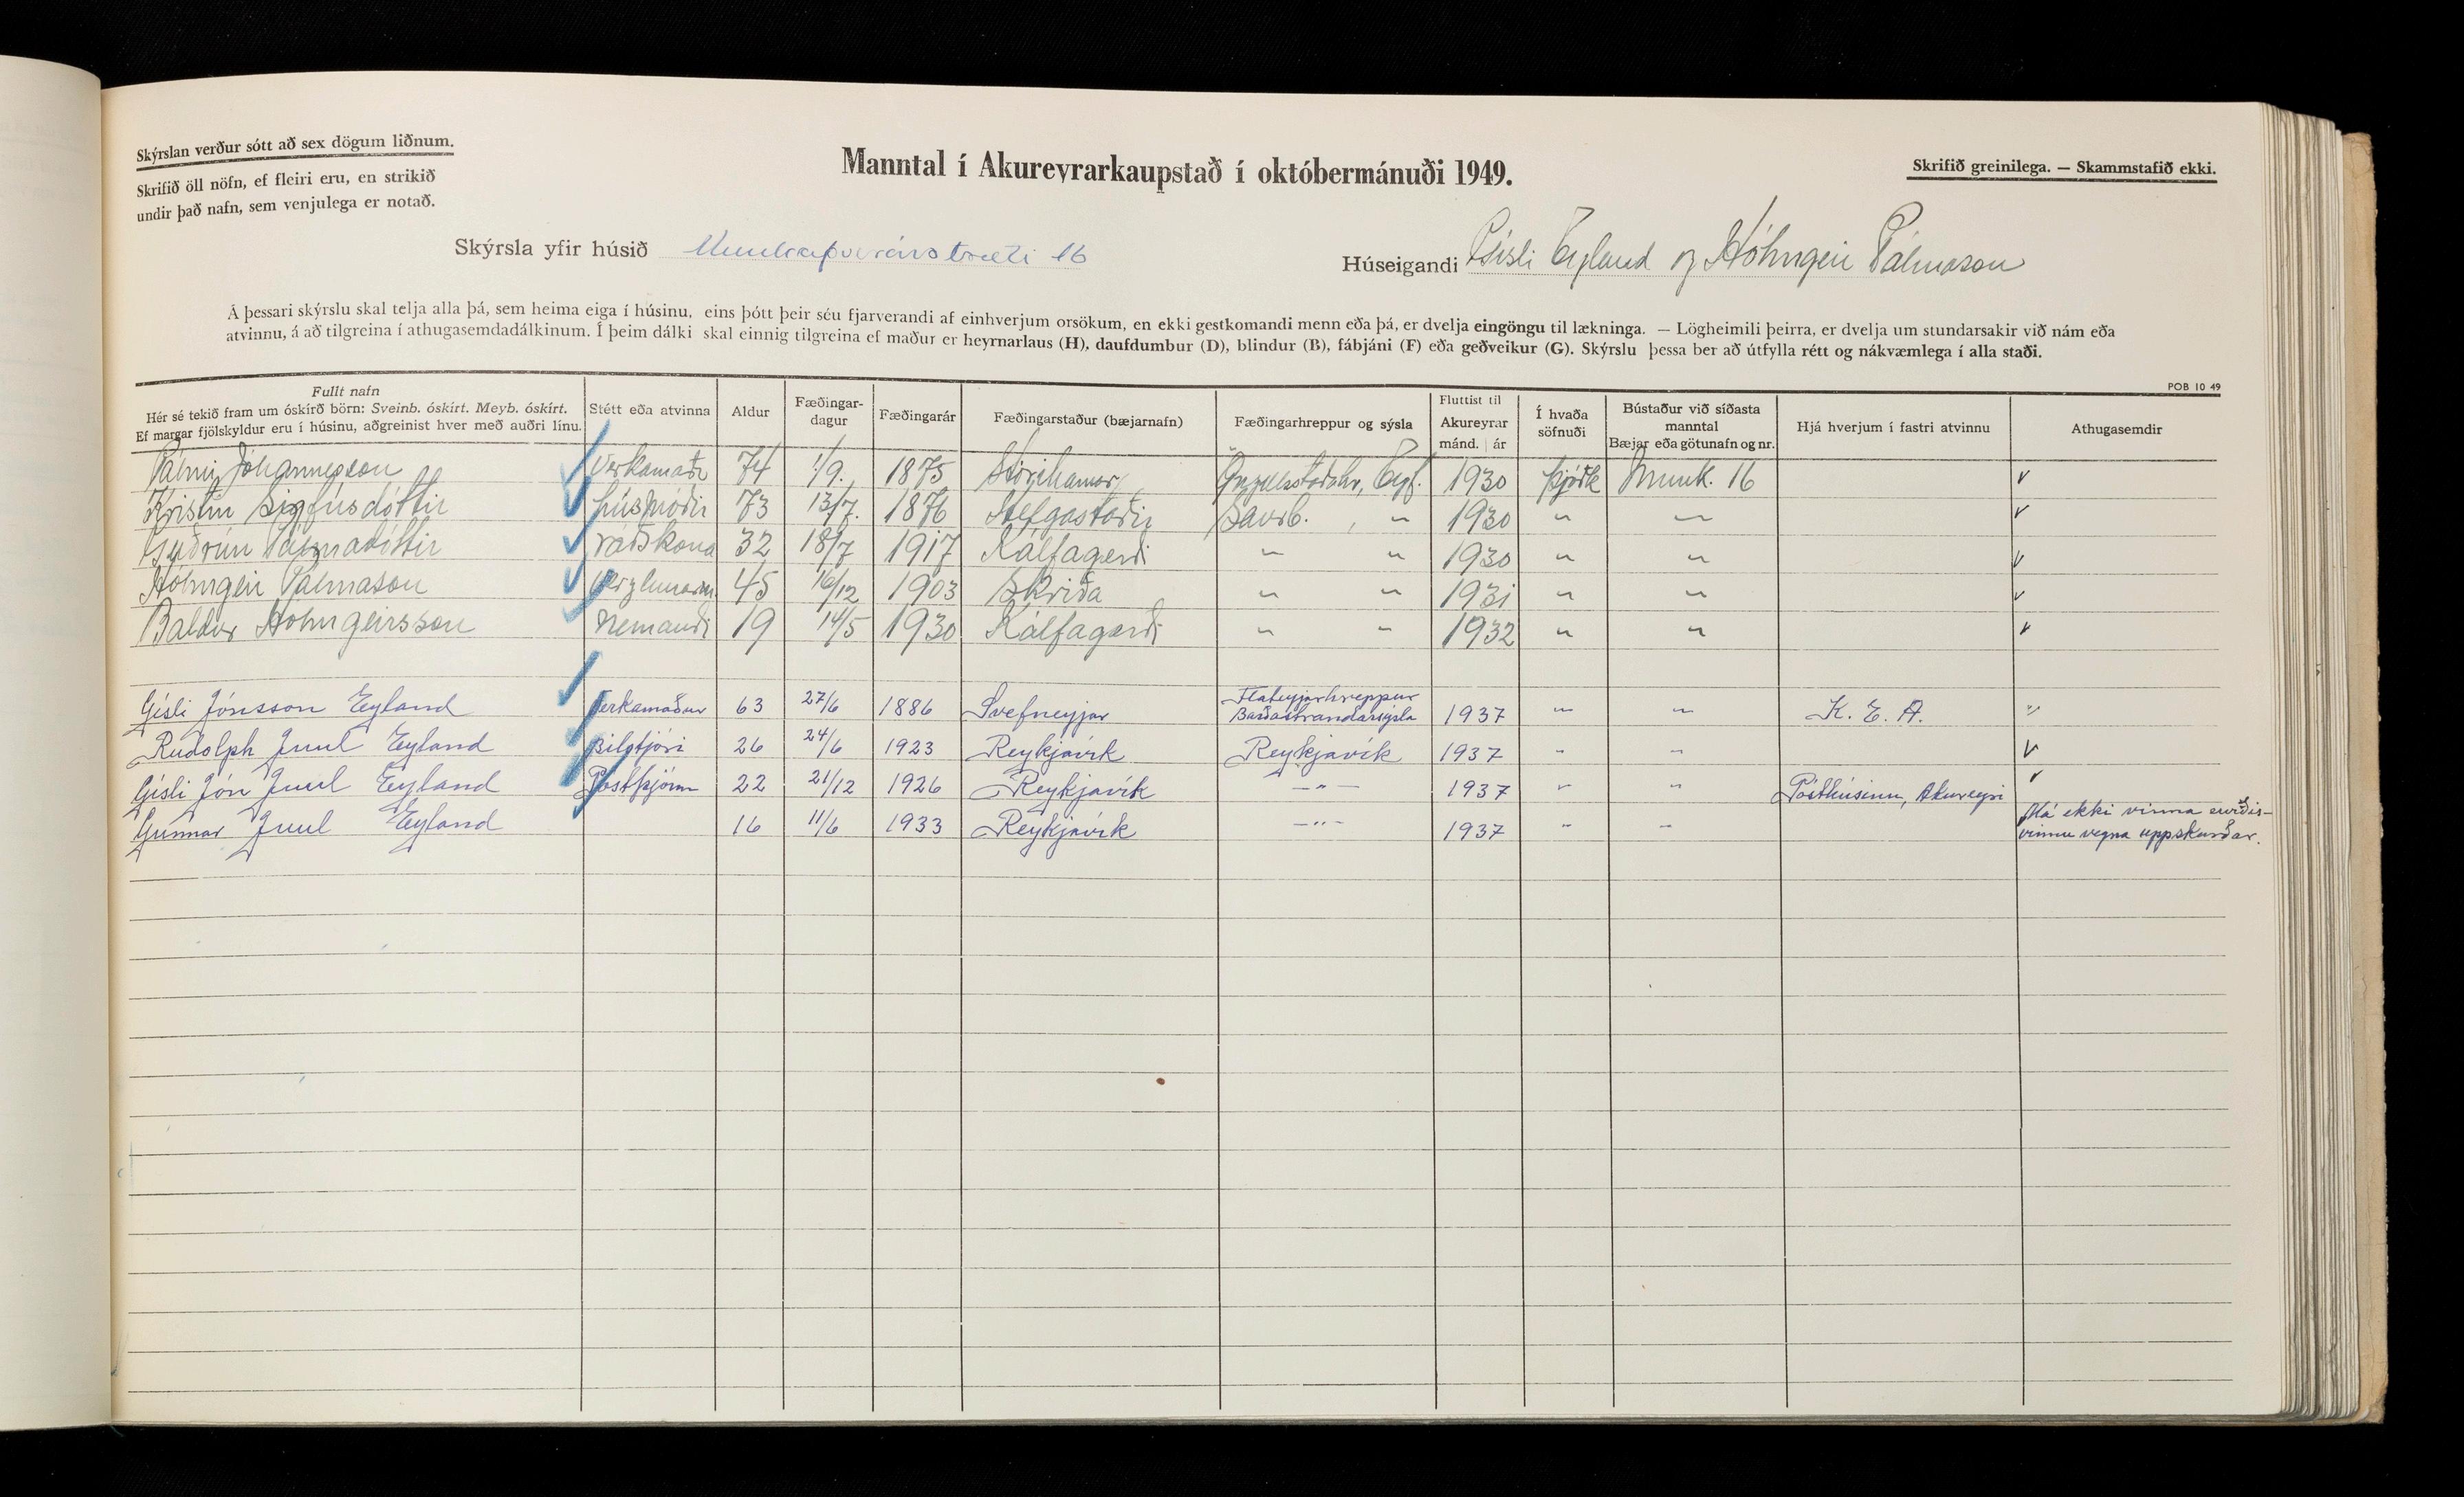 Skýrslan verður sótt að sex dögum liðnum.
Skrifið öll nöfn, ef fleiri eru, en strikið
undir það nafn, sem venjulega er notað.
Manntal í Akureyrarkaupstað í októbermánuði 1949.
Skrifið greinilega. — Skammstafið ekki.
Skýrsla yfir húsið Munkaþverárstræti 16
Húseigandi Gísli Eyland og Hólmgeir Pálmason
Á þessari skýrslu skal telja alla þá, sem heima eiga í húsinu, eins þótt þeir séu fjarverandi af einhverjum orsökum, en ekki gestkomandi menn eða þá, er dvelja eingöngu til lækninga. — Lögheimili þeirra, er dvelja um stundarsakir við nám eða
atvinnu, á að tilgreina í athugasemdadálkinum. Í þeim dálki skal einnig tilgreina ef maður er heyrnarlaus (H), daufdumbur (D), blindur (B), fábjáni (F) eða geðveikur (G). Skýrslu þessa ber að útfylla rétt og nákvæmlega í alla staði.
POB 10 49
Fullt nafn
Hér sé tekið fram um óskírð börn: Sveinb. óskírt. Meyb. óskírt.
Ef margar fjölskyldur eru í húsinu, aðgreinist hver með auðri línu.
Stétt eða atvinna
Aldur
Fæðingar-
dagur
Fæðingarár
Fæðingarstaður (bæjarnafn)
Fæðingarhreppur og sýsla
Fluttist til
Akureyrar
mánd. ár
Í hvaða
söfnuði
Bústaður við síðasta
manntal
Bæjar eða götunafn og nr.
Hjá hverjum í fastri atvinnu
Athugasemdir
Pálmi Jóhannesson Verkamaðr 74 1/9. 1875 Stórihamar Öngulsstaðahr, Eyf. 1930 þjóðk Munk. 16 ✓
Kristín Sigfúsdóttir húsmóðir 73 13/7. 1876 Saurb. , " 1930 " " ✓
Guðrún Pálmadóttir ráðskona 32 18/7 1917 Kálfagerði " " 1930 " " ✓
Hólmgeir Pálmason 45 16/12 1903 Skriða " " 1931 " " ✓
Baldur Hólmgeirsson Nemandi 19 14/5 1930 Kálfagerði " " 1932 " " ✓
Gísli Jónsson Eyland Verkamaður 63 27/6 1886 Svefneyjar Flateyjarhreppur Barðastrandarsýsla 1937 " " K. E. A. "
Rudolph Juul Eyland Bílstjóri 26 24/6 1923 Reykjavík Reykjavík 1937 " " ✓
Gísli Jón Juul Eyland Póstþjónn 22 21/12 1926 Reykjavík —"— 1937 " " Pósthúsinu, Akureyri ✓
Gunnar Juul Eyland 16 11/6 1933 Reykjavík —"— 1937 " " Má ekki vinna erviðis-
vinnu vegna uppskurðar.